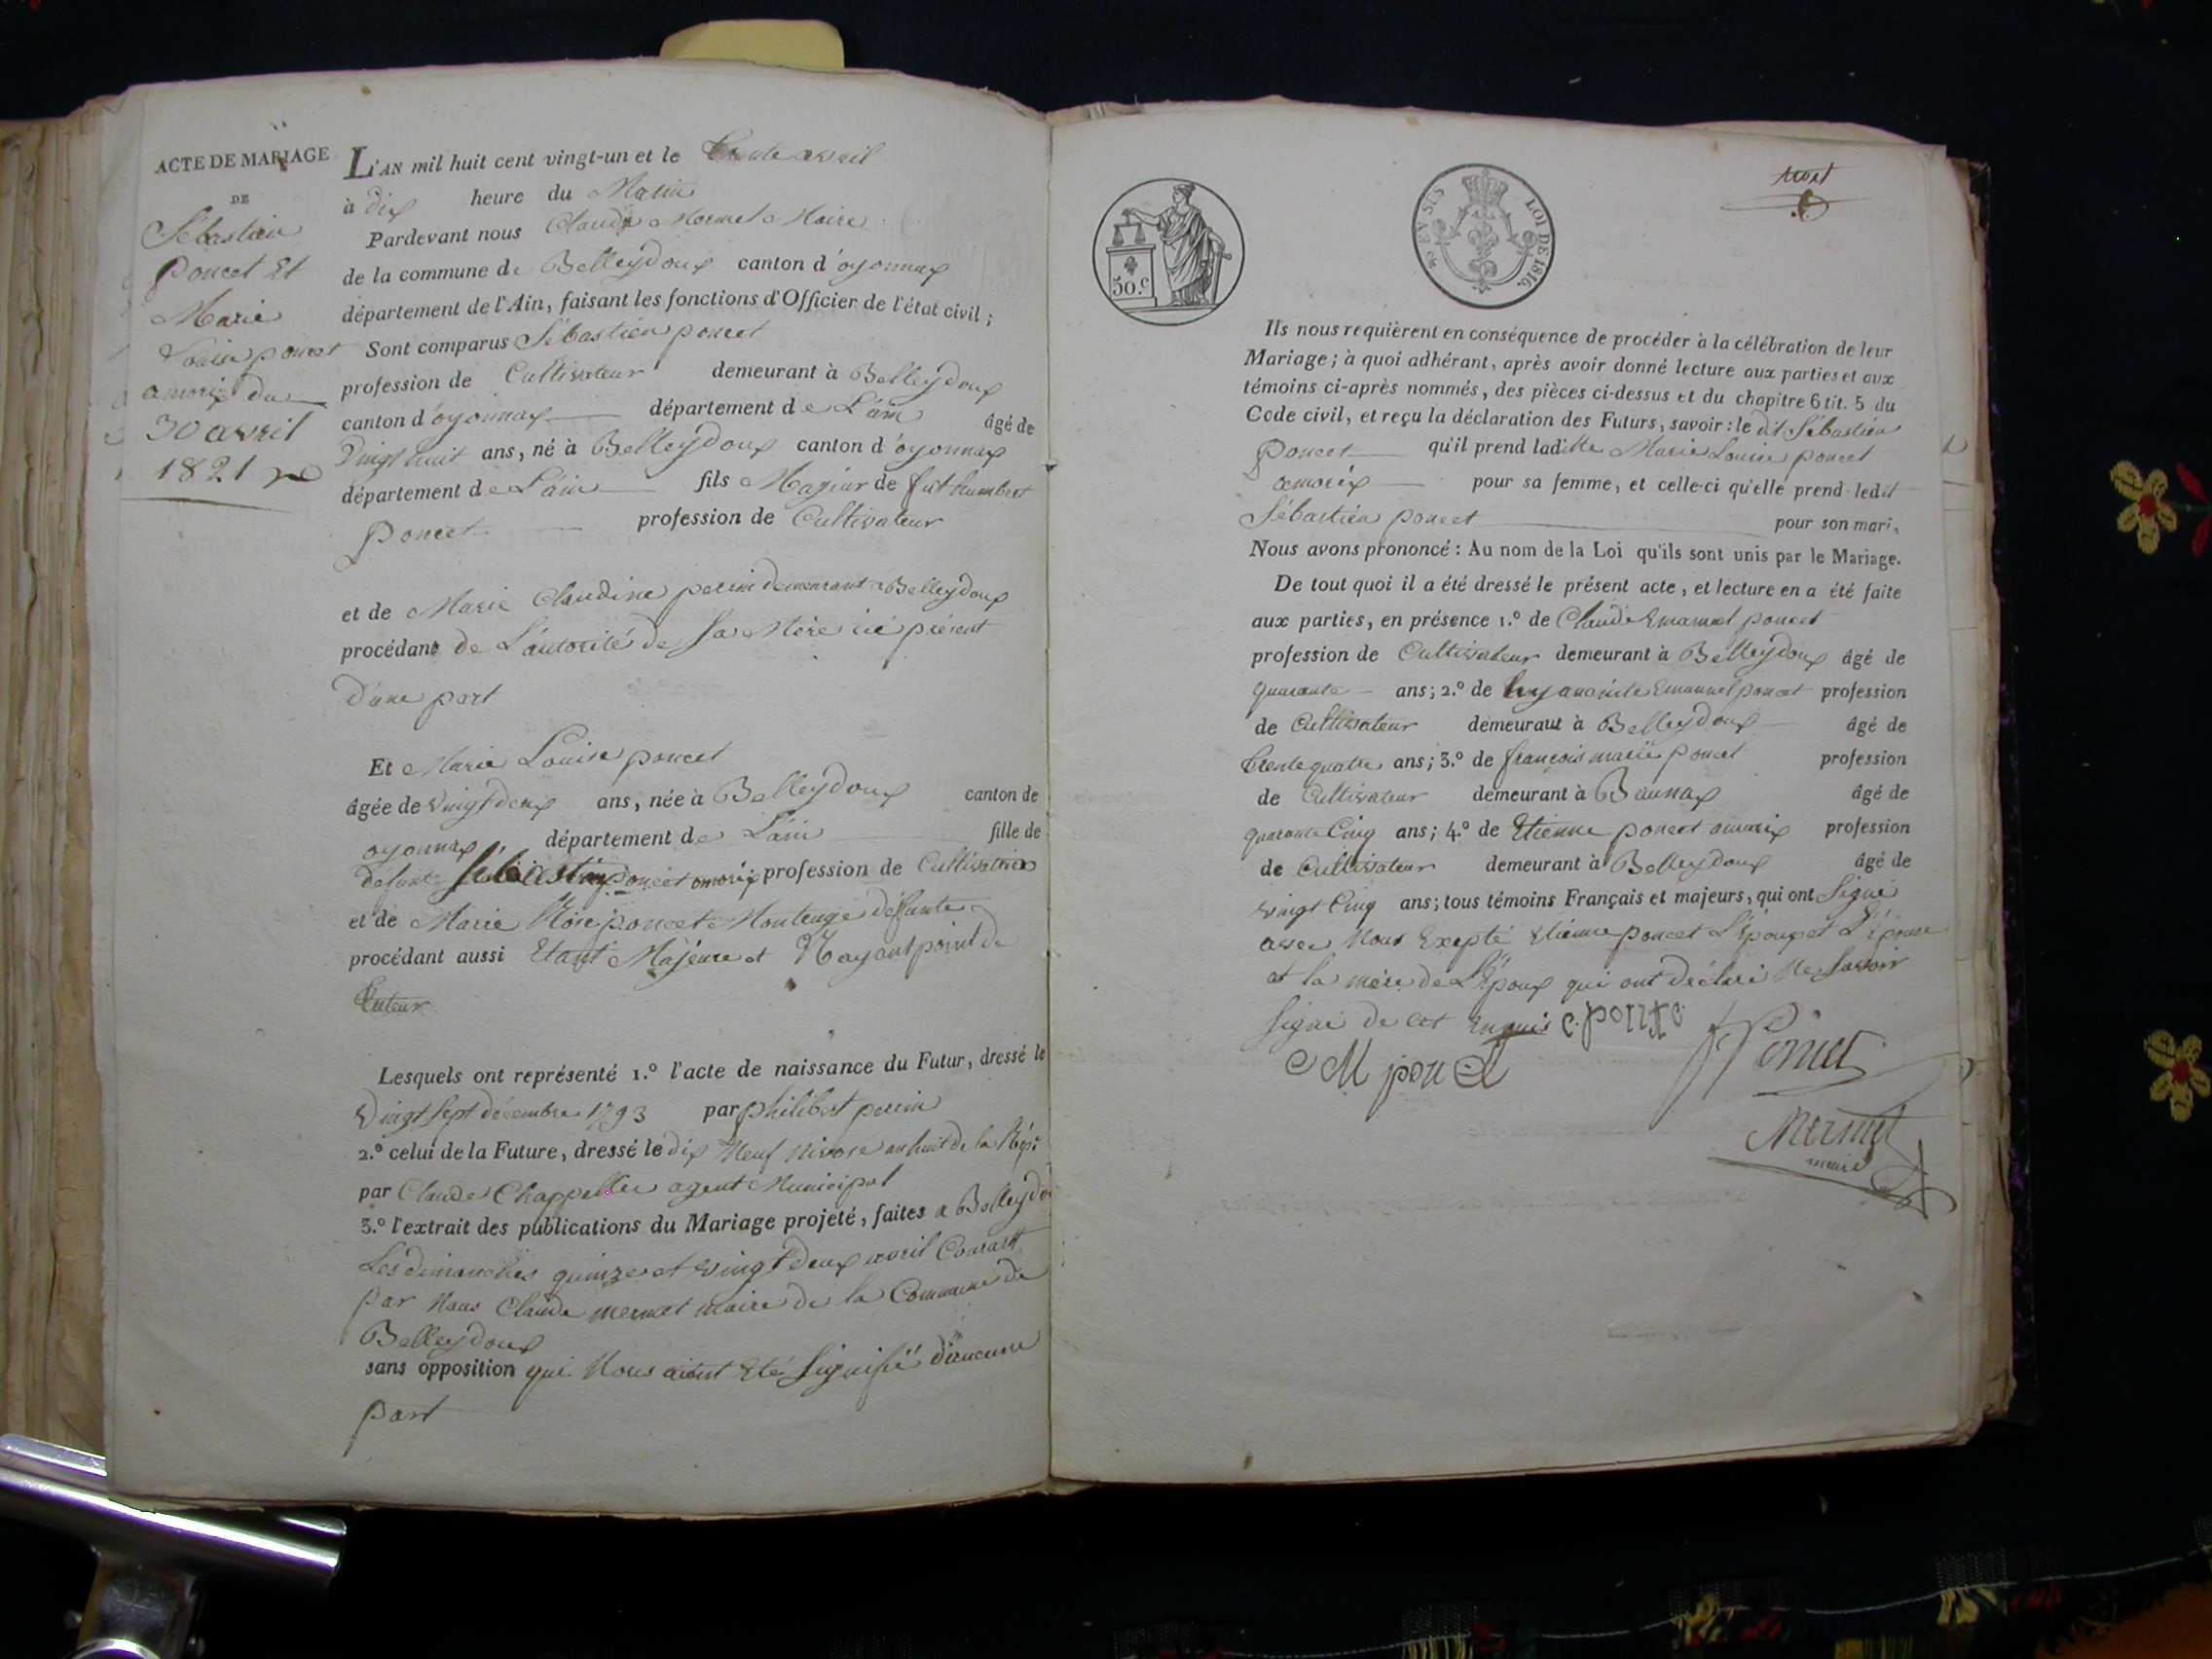 ACTE DE MARIAGE
DE
Sébastien
Poncet Et
Marie
Louise poncet
amorix du
30 avril
1821
L'AN mil huit cent vingt-un et le trente avril
à dix heure du Matin
Pardevant nous Claude Mermet Maire
de la commune de Belleydoux canton d'oyonnax
département de l'Ain, faisant les fonctions d'Officier de l'état civil;
Sont comparus Sébastien poncet
profession de Cultivateur demeurant à Belleydoux
canton d'oyonnax département de L'ain âgé de
Vingt huit ans, né à Belleydoux canton d'oyonnax
département de L'ain fils Majeur de fut humbert
Poncet profession de Cultivateur
et de Marie Claudine perrin demeurant a Belleydoux
procédant de L'autorité de Sa Mère ici présent
D'une part
Et Marie Louise poncet
âgée de vingt deux ans, née à Belleydoux canton de
oyonnax département de L'ain fille de
défunt Sébastien poncet amorix profession de Cultivatrice
et de Marie Rose poncet Montange deffunte
procédant aussi Etant Majeure et N'ayant point de
tuteur
Lesquels ont représenté 1.º l'acte de naissance du Futur, dressé le
Vingt Sept décembre 1793 par philibert perrin
2.º celui de la Future, dressé le dix Neuf nivose an huit de la Rép.
par Claude Chappellu agent Municipal
3.º l'extrait des publications du Mariage projeté, faites a Belleydou
Les dimanches quinze et vingt deux avril Courant
par Nous Claude mermet maire de la Commune de
Belleydoux
sans opposition qui Nous aient Eté Signifié d'aucune
part
50.c
LOI DE 1816.
Ils nous requièrent en conséquence de procéder à la célébration de leur
Mariage; à quoi adhérant, après avoir donné lecture aux parties et aux
témoins ci-après nommés, des pièces ci-dessus et du chapitre 6 tit. 5 du
Code civil, et reçu la déclaration des Futurs, savoir: le dit Sébastien
Poncet qu'il prend laditte Marie Louise poncet
amorix pour sa femme, et celle-ci qu'elle prend ledit
Sébastien poncet pour son mari,
Nous avons prononcé: Au nom de la Loi qu'ils sont unis par le Mariage.
De tout quoi il a été dressé le présent acte, et lecture en a été faite
aux parties, en présence 1.º de Claude Emanuel poncet
profession de Cultivateur demeurant à Belleydoux âgé de
quarante ans; 2.º de hyauainte Emanuel poncet profession
de Cultivateur demeurant à Belleydoux âgé de
trente quatre ans; 3.º de françois marie poncet profession
de Cultivateur demeurant à Baunax âgé de
quarante Cinq ans; 4.º de Etienne poncet amorix profession
de Cultivateur demeurant à Belleydoux âgé de
vingt Cinq ans; tous témoins Français et majeurs, qui ont Signé
avec Nous Exepté Etienne poncet L'Epoux et L'épouse
et la mère de L'Epoux qui ont déclaré Ne Savoir
Signé de cet Enquis
Mermet
maire